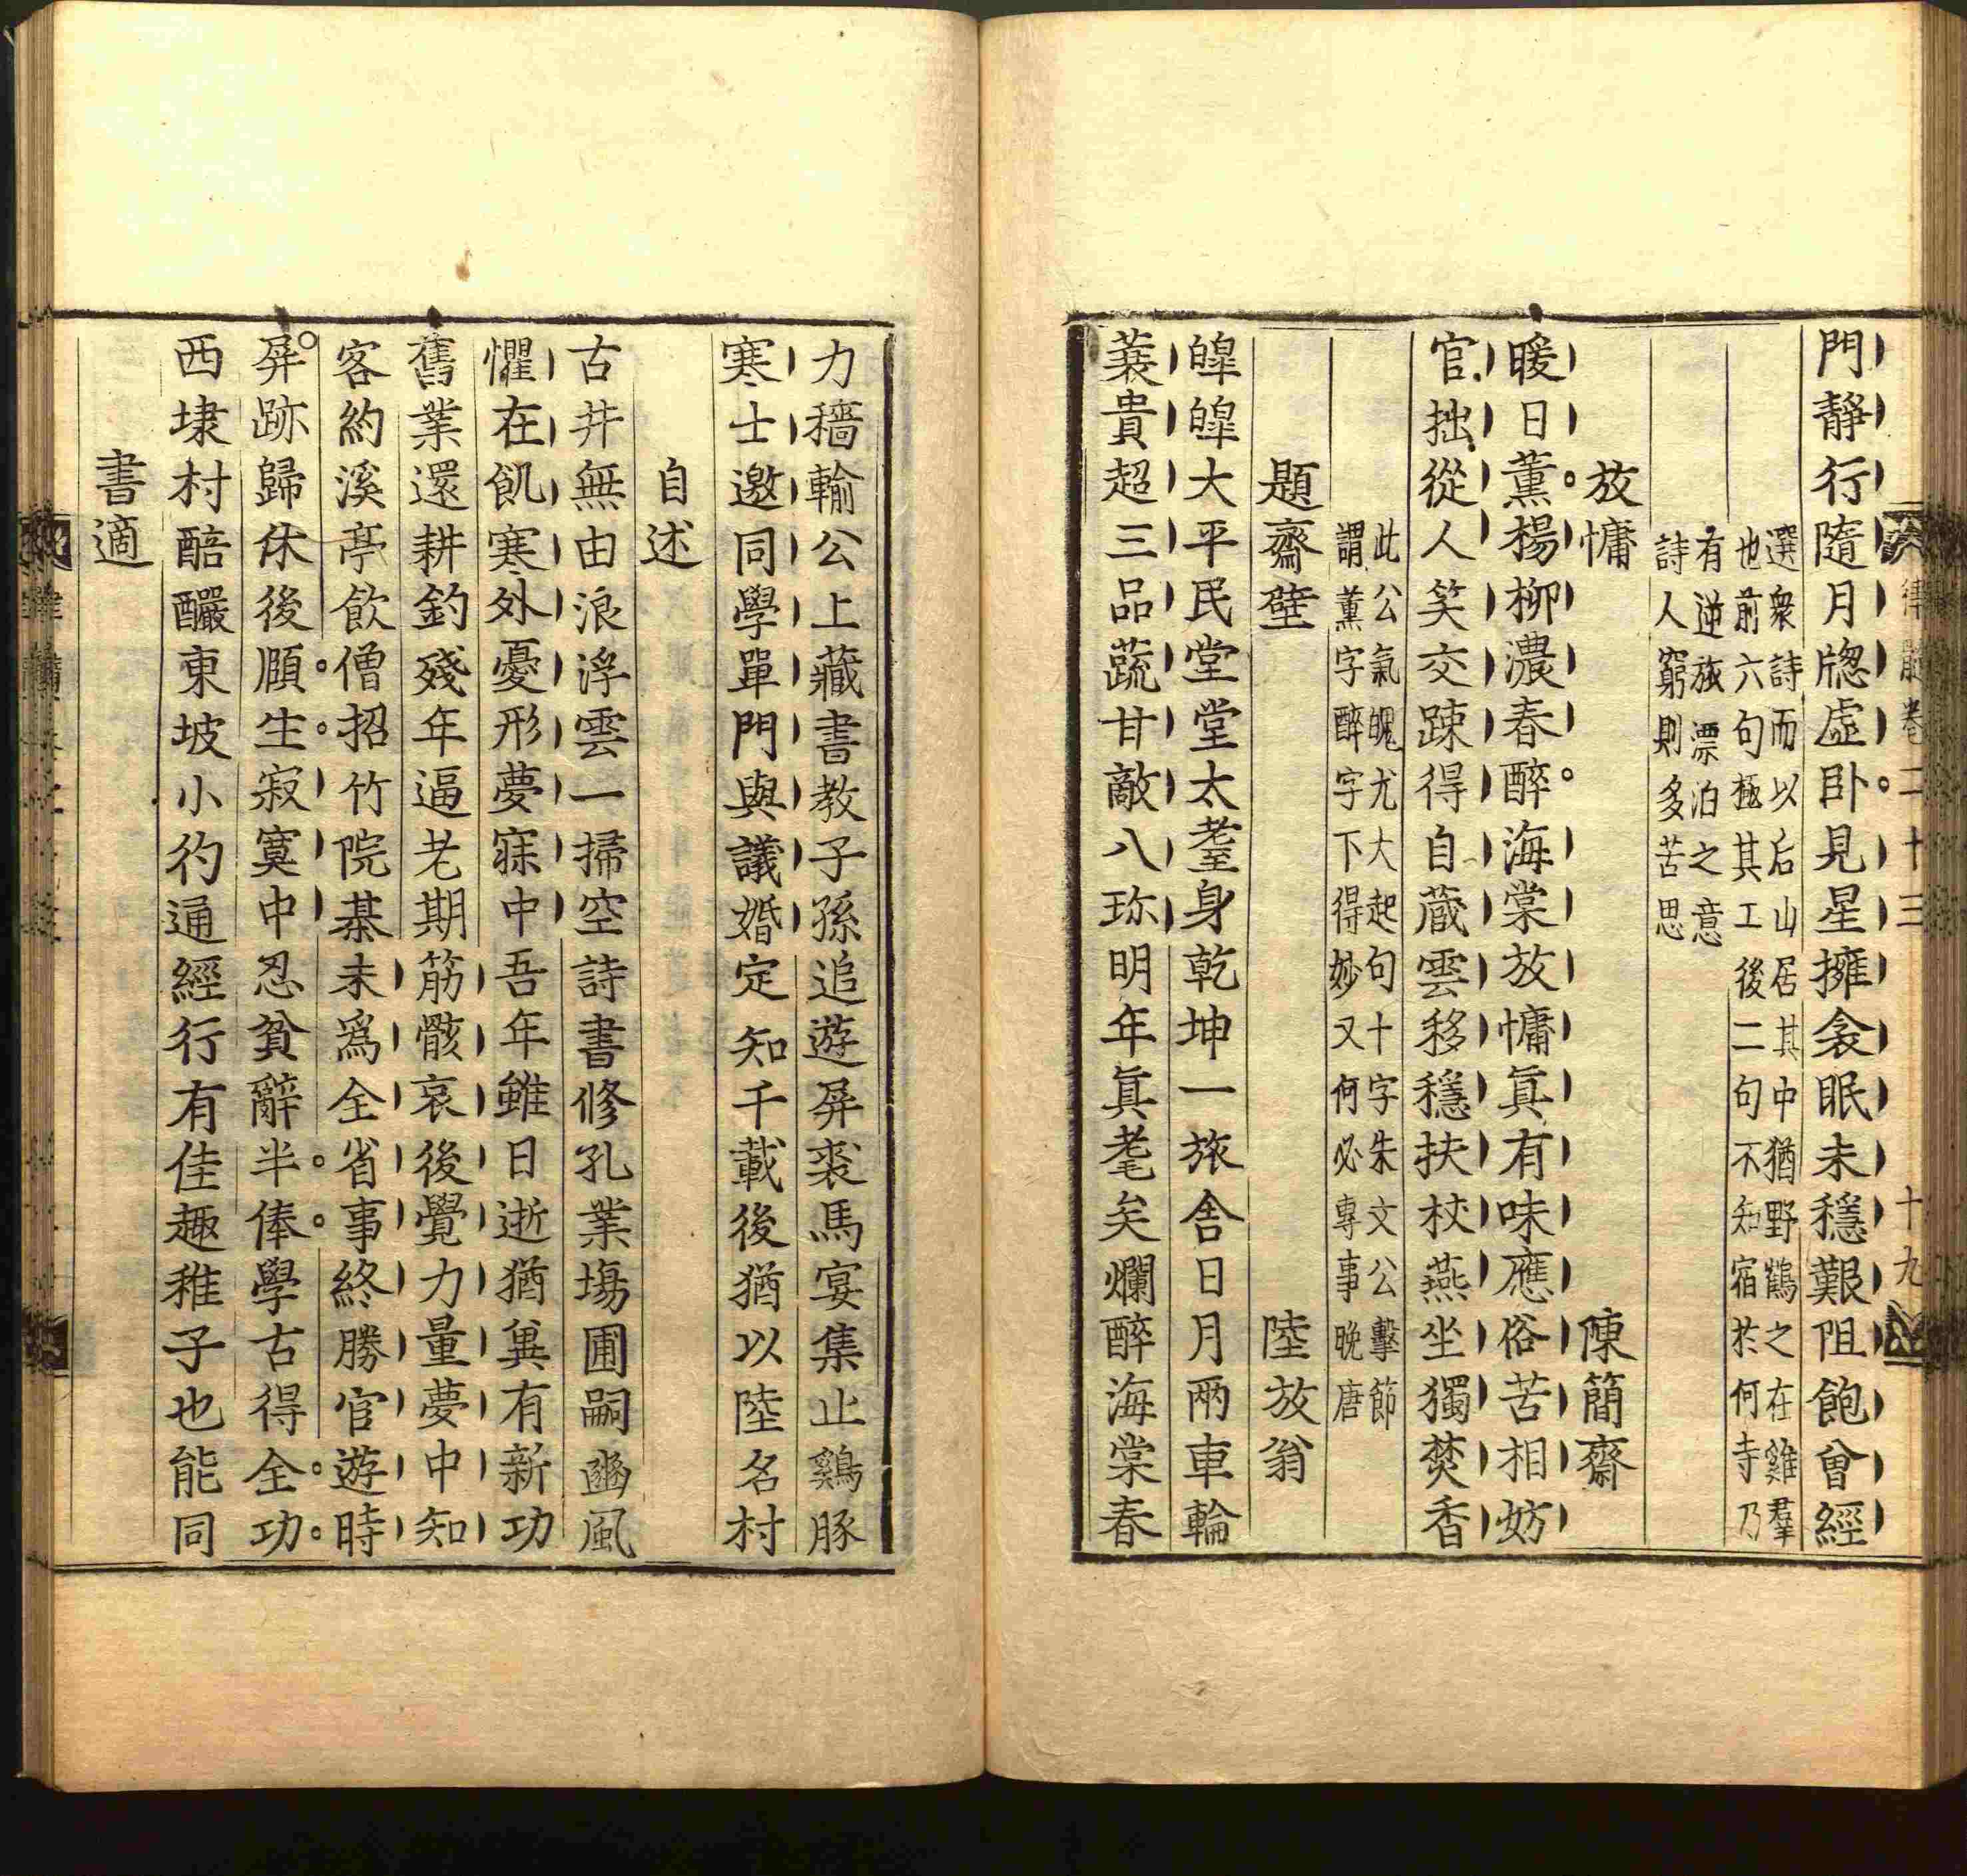 律髓卷二十三 十九
門靜行隨月牕虛卧見星擁衾眠未穩艱阻飽曾經
選衆詩而以后山居其中猶野鶴之在雞羣
也前六句極其工後二句不知宿於何寺乃
有逆旅漂泊之意
詩人窮則多苦思
放慵 陳簡齋
暖日薰楊柳濃春醉海棠放慵眞有味應俗苦相妨
官拙從人笑交踈得自蔵雲移穩扶杖燕坐獨焚香
此公氣魄尤大起句十字朱文公擊節
謂薰字醉字下得妙又何必專事晩唐
題齋壁 陸放翁
皥皥大平民堂堂太耋身乾坤一旅舎日月兩車輪
蓑貴超三品蔬甘敵八珎明年眞耄矣爛醉海棠春
力穡輸公上藏書教子孫追遊屏裘馬宴集止鷄豚
寒士邀同學單門與議婚定知千載後猶以陸名村
自述
古井無由浪浮雲一掃空詩書修孔業塲圃嗣豳風
懼在飢寒外憂形夢寐中吾年雖日逝猶兾有新功
舊業還耕釣殘年逼老期筋骸衰後覺力量夢中知
客約溪亭飲僧招竹院棊未爲全省事終勝官遊時
屏跡歸休後頥生寂寞中忍貧辭半俸學古得全功
西埭村醅釅東坡小彴通經行有佳趣稚子也能同
書適